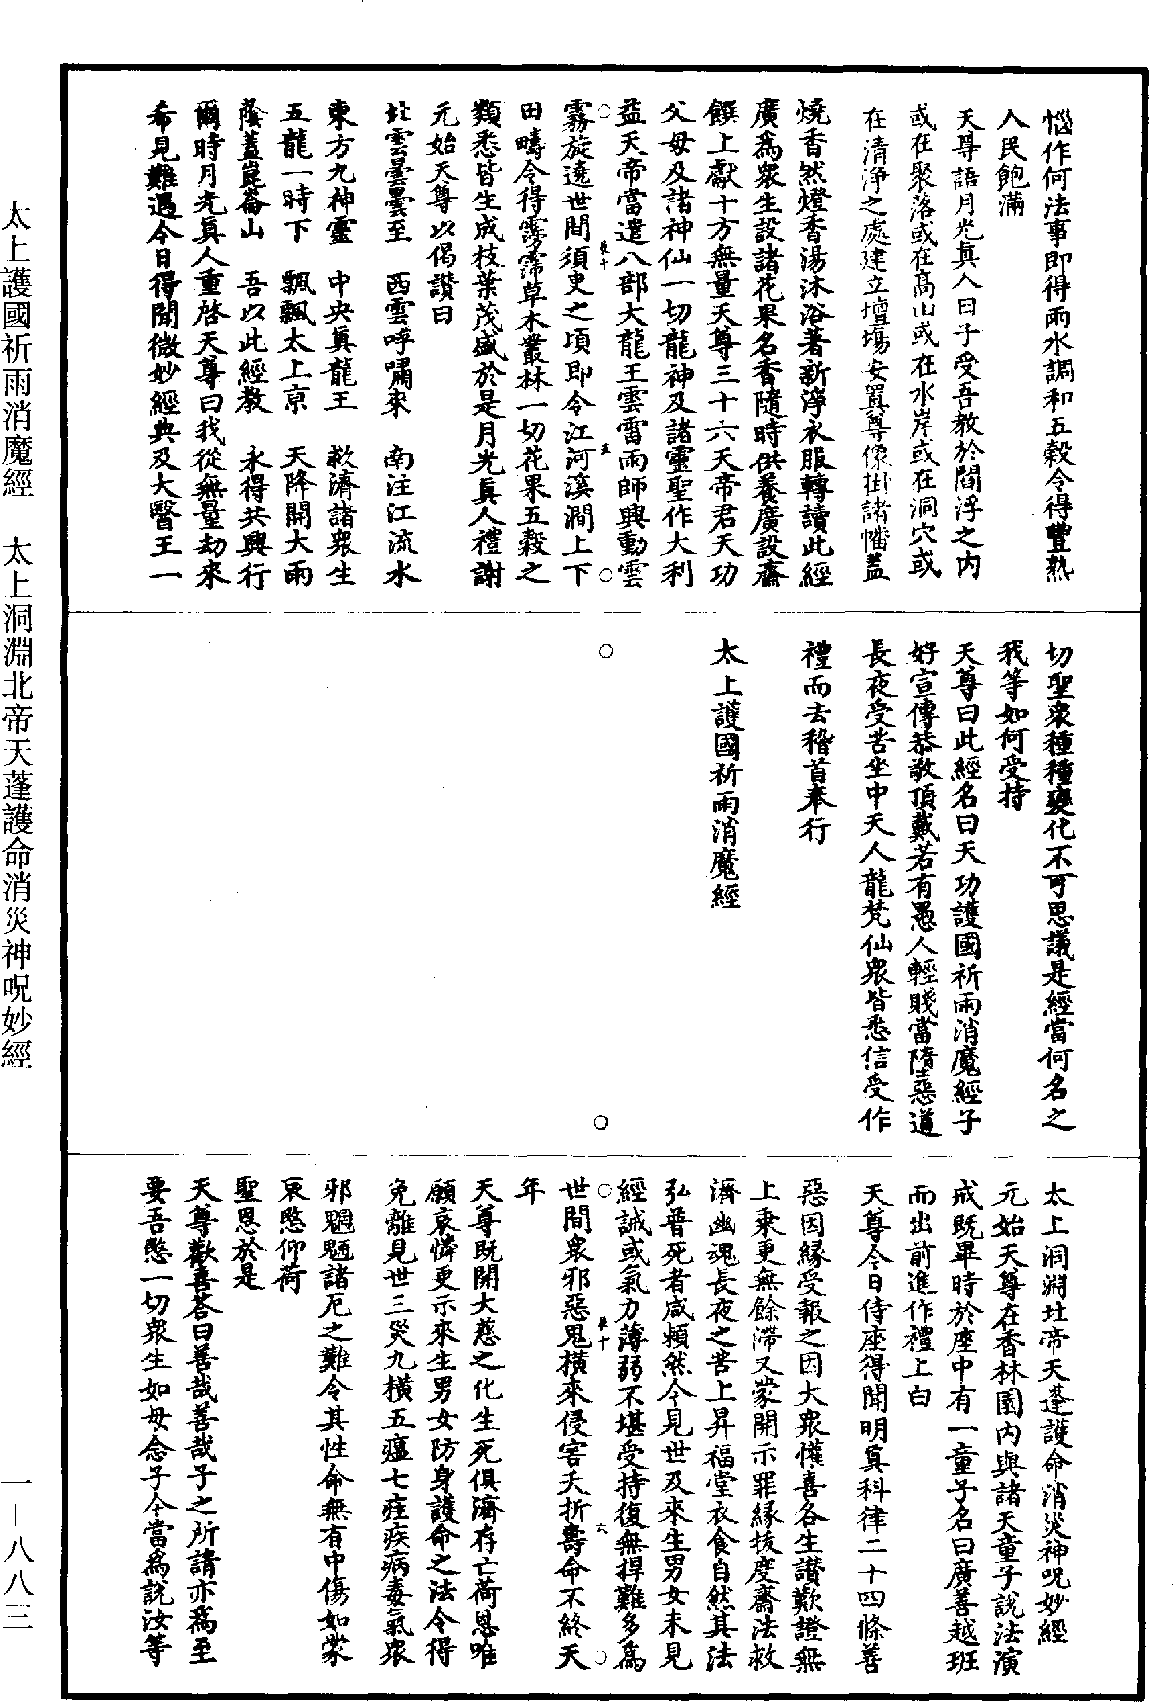 惱作何法事即得雨水調和五穀令得豐熟
人民飽滿
天尊語月光真人曰子受吾教於閻浮之內
或在聚落或在高山或在水岸或在洞穴或
在清淨之處建立壇場安置尊像掛諸幡蓋
燒香然燈香湯沐浴著新淨衣服轉讀此經
廣為衆生設諸花果名香隨時供養廣設齋
饌上獻十方無量天尊三十六天帝君天功
父母及諸神仙一切龍神及諸靈聖作大利
益天帝當遣八部大龍王雲雷雨師興動雲
霧旋遶世間須臾之頃即令江河溪澗上下
田疇令得霶霈草木叢林一切花果五穀之
類悉皆生成枝葉茂盛於是月光真人禮謝
元始天尊以偈讚曰
北雲曇曇至　西雲呼嘯來　南注江流水
東方九神靈　中央真龍王　救濟諸衆生
五龍一時下　飄飄太上京　天降開大雨
蔭蓋崑崙山　吾以此經教　永得共興行
爾時月光真人重啓天尊曰我從無量劫來
希見難遇今日得聞微妙經典及大醫王一
切聖衆種種變化不可思議是經當何名之
我等如何受持
天尊曰此經名曰天功護國祈雨消魔經子
好宣傳恭敬頂戴若有愚人輕賤當墮惡道
長夜受苦坐中天人龍梵仙衆皆悉信受作
禮而去稽首奉行
太上護國祈雨消魔經
太上洞淵北帝天蓬護命消災神呪妙經
元始天尊在香林園內與諸天童子說法演
戒既畢時於座中有一童子名曰廣善越班
而出前進作禮上白
天尊今日侍座得聞明真科律二十四條善
惡因緣受報之因大衆懽喜各生讚歎證無
上乘更無餘滯又蒙開示罪緣拔度齋法救
濟幽魂長夜之苦上昇福堂衣食自然其法
弘普死者咸賴然今見世及來生男女未見
經誡或氣力薄弱不堪受持復無捍難多為
世間衆邪惡鬼橫來侵害夭折壽命不終天
年
天尊既開大慈之化生死俱濟存亡荷恩唯
願哀憐更示來生男女防身護命之法令得
免離見世三災九橫五瘟七疰疾病毒氣衆
邪魍魎諸厄之難令其性命無有中傷如蒙
哀愍仰荷
聖恩於是
天尊歡喜答曰善哉善哉子之所請亦為至
要吾愍一切衆生如母念子今當為說汝等
太上護國祈雨消魔經　太上洞淵北帝天蓬護命消災神呪妙經
一—八八三